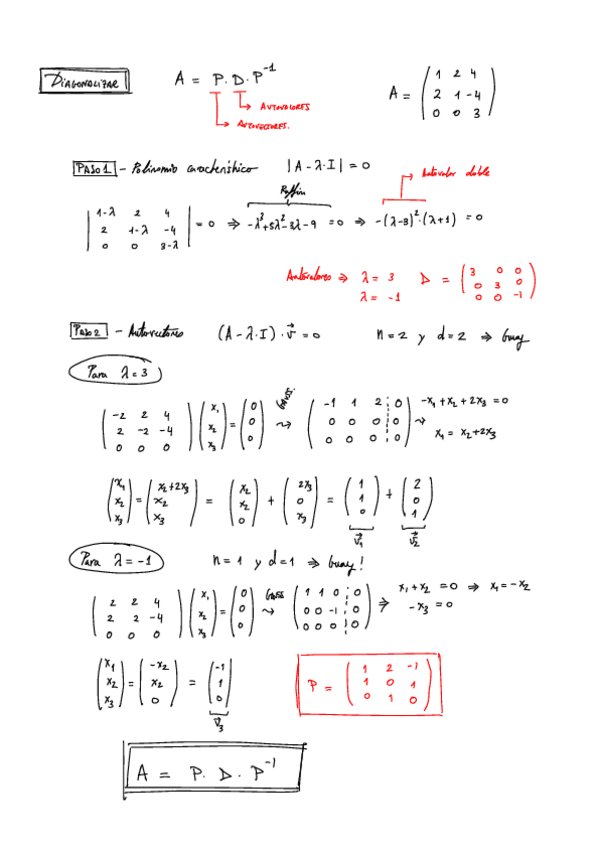 DIAGONALIZAR A = P. D. P⁻¹ A = ( 1 2 4 / 2 1 -4 / 0 0 3 )
AUTOVALORES
AUTOVECTORES.
PASO 1 - Polinomio característico |A - λ·I| = 0
Autovalor doble
Ruffini
| 1-λ 2 4 / 2 1-λ -4 / 0 0 3-λ | = 0 ⇒ -λ³+5λ²-3λ-9 = 0 ⇒ -(λ-3)²·(λ+1) = 0
Autovalores ⇒ λ = 3 D = ( 3 0 0 / 0 3 0 / 0 0 -1 )
λ = -1
PASO 2 - Autovectores (A - λ·I)·v⃗ = 0 n = 2 y d = 2 ⇒ guay
Para λ = 3
( -2 2 4 / 2 -2 -4 / 0 0 0 ) ( x₁ / x₂ / x₃ ) = ( 0 / 0 / 0 ) Gauss. ⇝ ( -1 1 2 ¦ 0 / 0 0 0 ¦ 0 / 0 0 0 ¦ 0 ) ⇝ -x₁ + x₂ + 2x₃ = 0
x₁ = x₂+2x₃
( x₁ / x₂ / x₃ ) = ( x₂+2x₃ / x₂ / x₃ ) = ( x₂ / x₂ / 0 ) + ( 2x₃ / 0 / x₃ ) = ( 1 / 1 / 0 ) + ( 2 / 0 / 1 )
v⃗₁ v⃗₂
Para λ = -1 n = 1 y d = 1 ⇒ guay!
( 2 2 4 / 2 2 -4 / 0 0 0 ) ( x₁ / x₂ / x₃ ) = ( 0 / 0 / 0 ) Gauss ⇝ ( 1 1 0 ¦ 0 / 0 0 -1 ¦ 0 / 0 0 0 ¦ 0 ) ⇒ x₁ + x₂ = 0 ⇒ x₁ = -x₂
-x₃ = 0
( x₁ / x₂ / x₃ ) = ( -x₂ / x₂ / 0 ) = ( -1 / 1 / 0 ) P = ( 1 2 -1 / 1 0 1 / 0 1 0 )
v⃗₃
A = P. D. P⁻¹